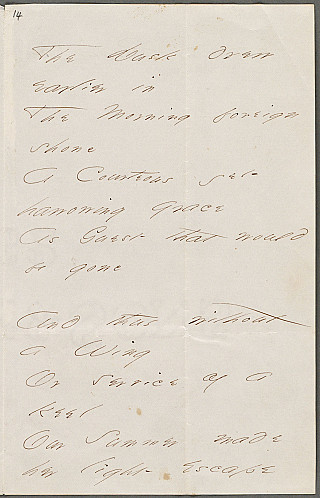 14
The Dusk drew
earlier in
The Morning foreign
shone
A Courteous yet
harrowing grace
As Guest that would
be gone
And thus without
a Wing
Or service of a
Keel
Our Summer made
her light Escape